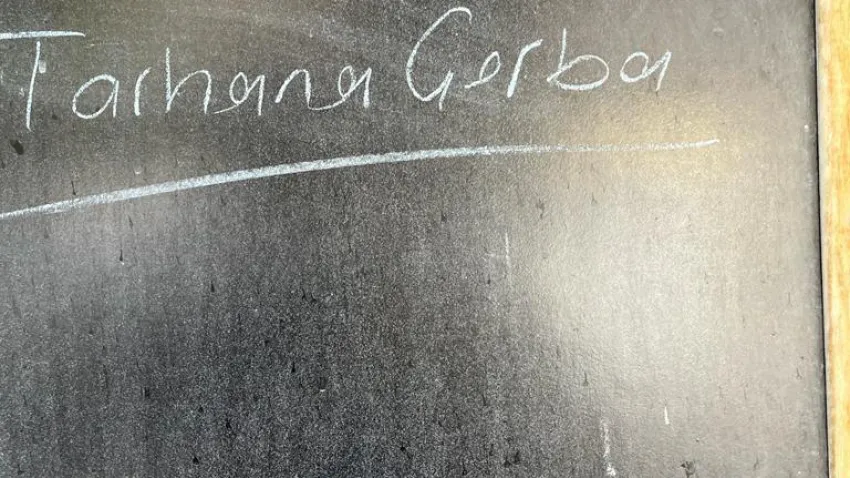 Tarhana Gerba